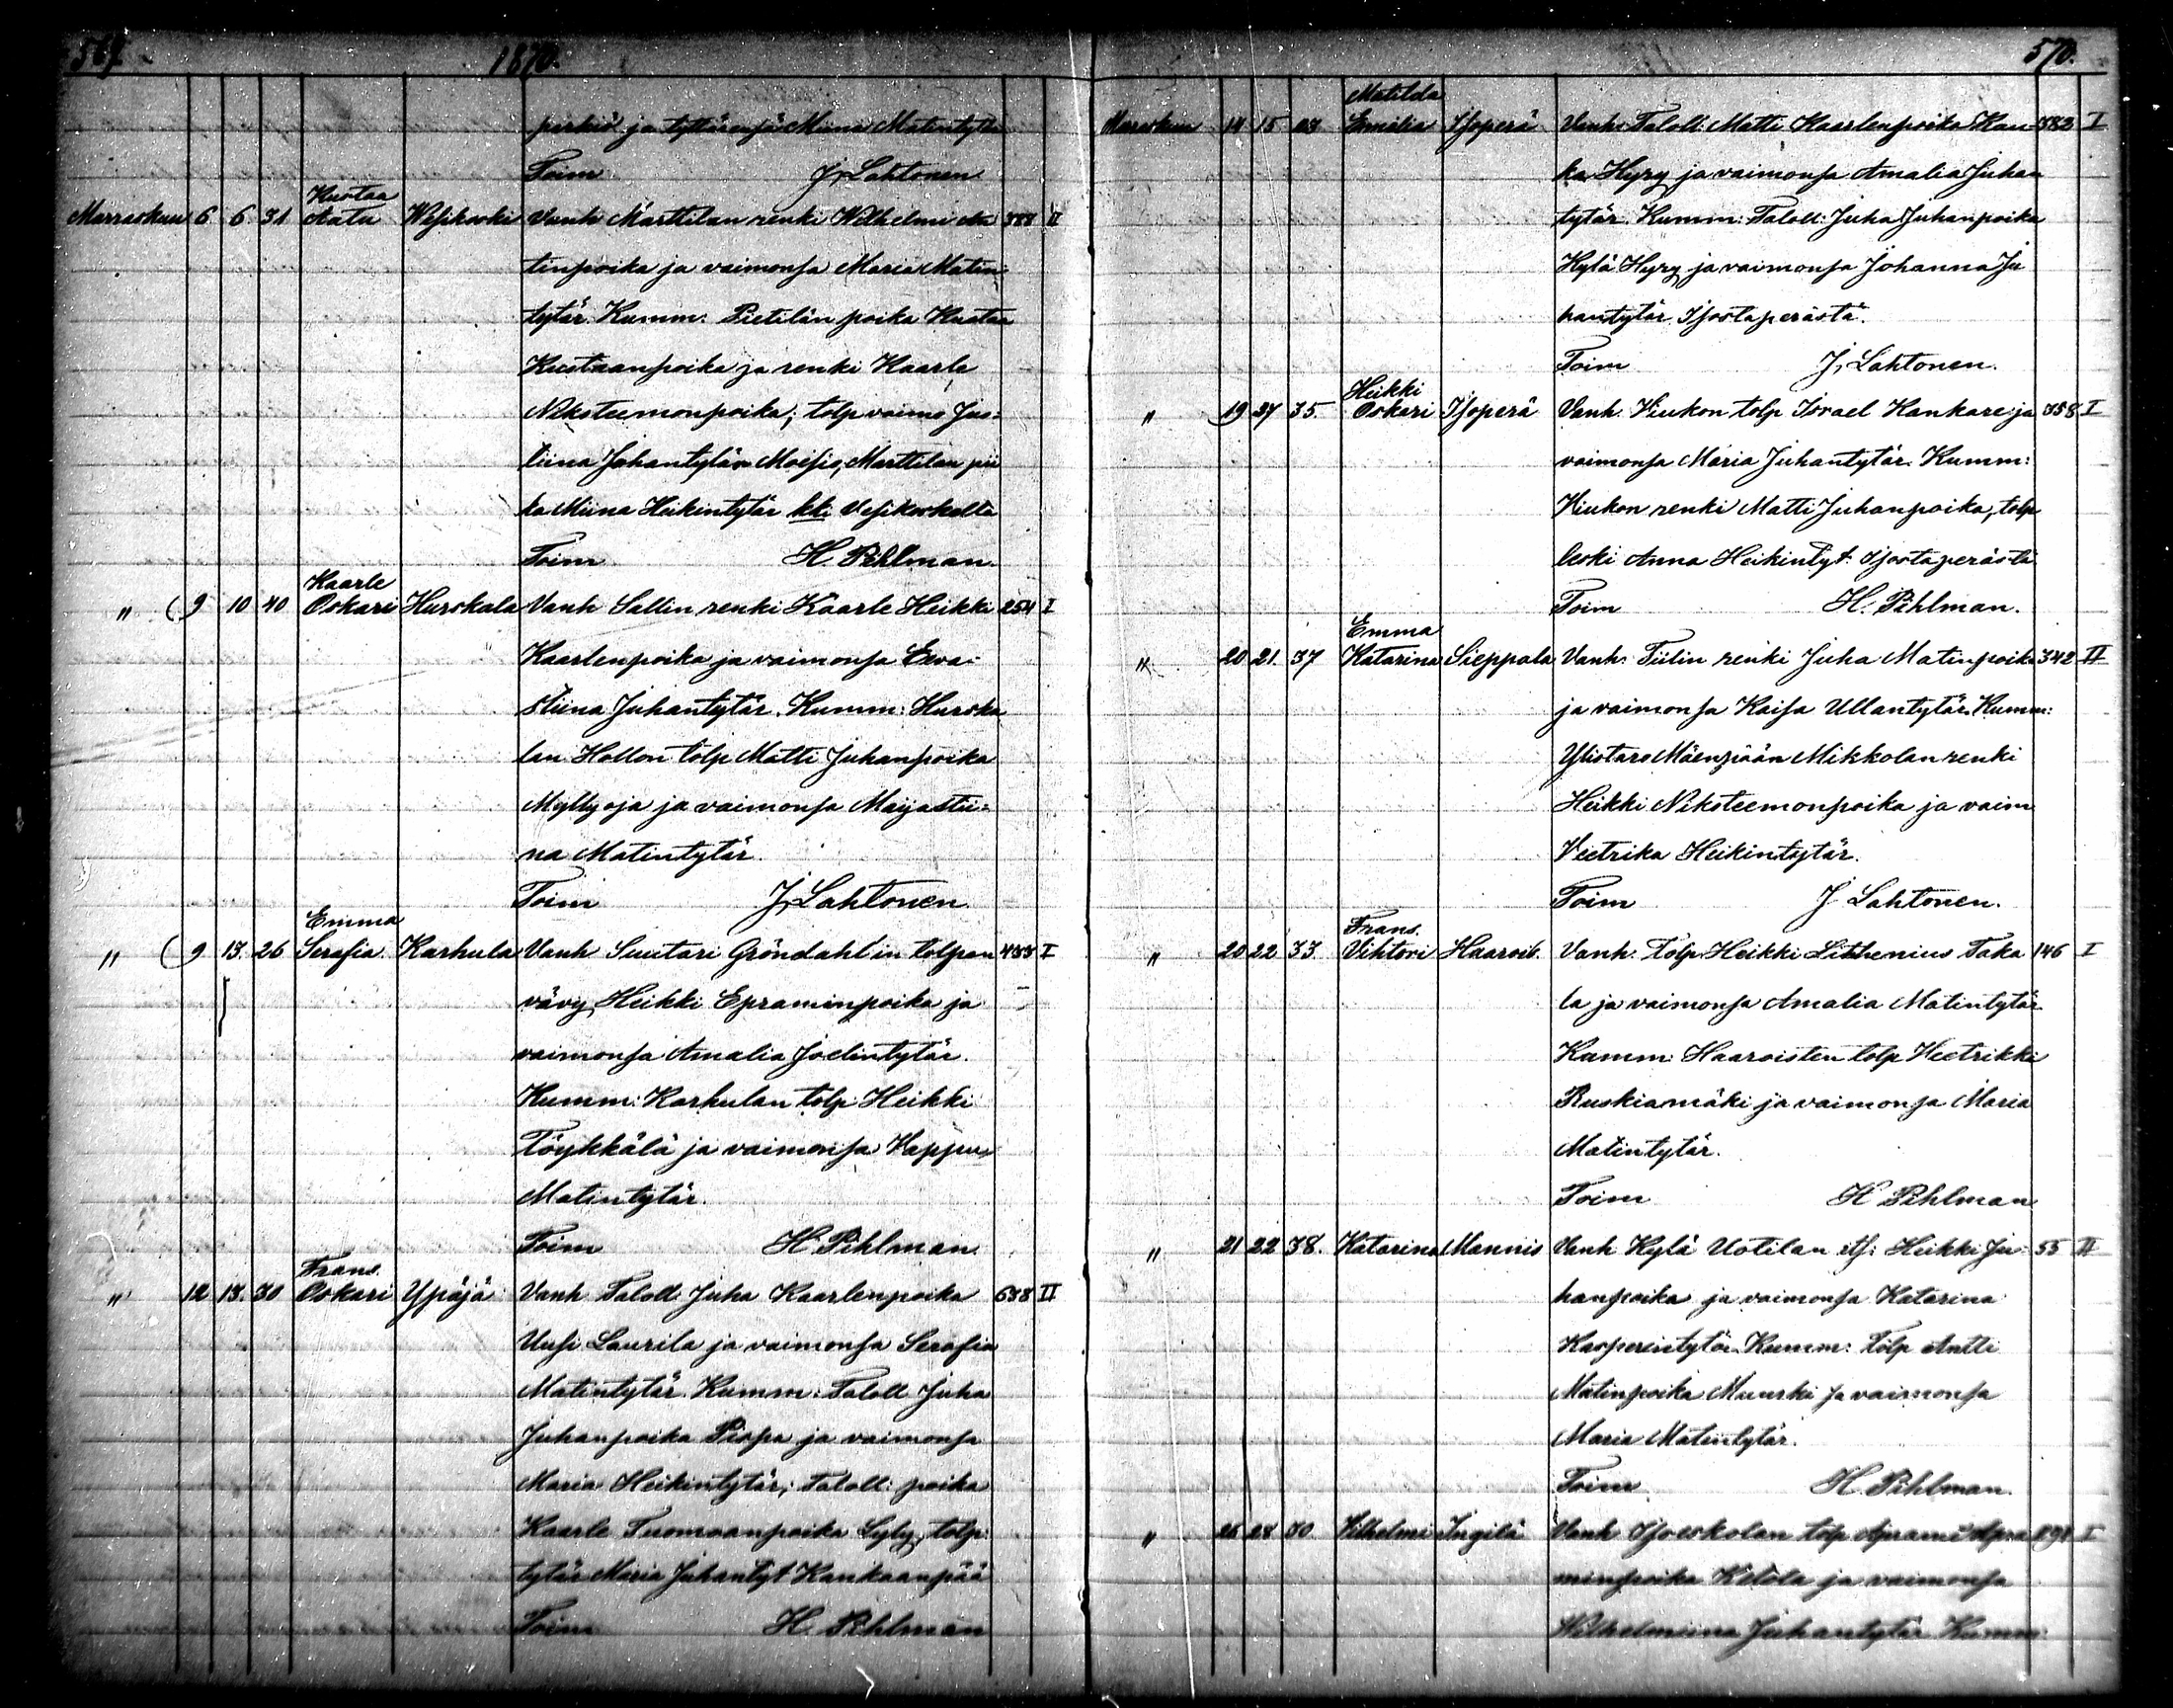 1870.
perkiö ja tyttärensä Miina Matintytär
Toim J. Lahtonen
Kustaa
Marraskuu 6 6 31 Aatu Wesikoski Vanh Marttilan renki Wilhelmi Ma 388 II
tinpoika ja vaimonsa Maria Matin
tytär. Kumm: Pietilän poika Kustaa
Kustaanpoika ja renki Kaarle
Niksteemonpoika; tolp vaimo Jus-
tiina Juhantytär Moisio, Marttilan pii
ka Miina Heikintytär kki Vesikoskelta
Toim H Pihlman.
Kaarle
" 9 10 40 Oskari Hurskala Vanh Sallin renki Kaarle Heikki 254 I
Kaarlenpoika ja vaimonsa Eeva-
Stiina Juhantytär. Kumm: Hurska
lan Hollon tolp Matti Juhanpoika
Myllyoja ja vaimonsa Maijastii-
na Matintytär.
Toim J. Lahtonen
Emma
" 9 13. 26 Serafia Karhula Vanh Suutari Gröndahl'in tolpan 433 I
vävy Heikki Epraminpoika ja
vaimonsa Amalia Joelintytär.
Kumm: Karhulan tolp: Heikki
Töykkälä ja vaimonsa Vappu
Matintytär.
Toim H Pihlman
Frans.
" 12 13. 30 Oskari Ypäjä Vanh Taloll Juha Kaarlenpoika 638 II
Uusi Laurila ja vaimonsa Serafia
Matintytär. Kumm: Taloll Juha
Juhanpoika Pispa ja vaimonsa
Maria Heikintytär; Taloll: poika
Kaarle Tuomaanpoika Syly, tolp:
tytär Maria Juhantyt Kankaanpää
Toim H Pihlman
570.
Matilda
Marraskuu 14 15 Emilia Isoperä Vanh. Taloll: Matti Kaarlenpoika Kau 583 I
ka Hyry ja vaimonsa Amalia Juhan
tytär. Kumm: Taloll: Juha Juhanpoika
Kylä Hyry ja vaimonsa Johanna Ju
hantytär Isostaperästä.
Toim J. Lahtonen.
Heikki
" 19 27 35. Oskari Isoperä Vanh. Kiukon tolp Israel Kankare ja 358 I
vaimonsa Maria Juhantytär. Kumm:
Kiukon renki Matti Juhanpoika, tolp
leski Anna Heikintyt: Isostaperästä
Toim H. Pihlman.
Emma
" 20 21. 37 Katarina Sieppala Vanh. Tiilin renki Juha Matinpoika 342 II
ja vaimonsa Kaisa Ullantytär. Kumm:
Ylistaro Mäenpään Mikkolan renki
Heikki Niksteemonpoika ja vaim
Veetrika Heikintytär.
Toim J Lahtonen.
Frans.
" 20 22 33. Vihtori Haarois. Vanh. Tolp Heikki Lithenius Taka 146 I
la ja vaimonsa Amalia Matintytär
Kumm: Haaroisten tolp Veetrikki
Ruskiamäki ja vaimonsa Maria
Matintytär.
Toim H Pihlman
" 21 22 38. Katarina Mannis Vanh Kylä Uotilan Heikki Ju- 55 II
hanpoika ja vaimonsa Katarina
Kasperintytär. Kumm: Tolp Antti
Matinpoika Muurki ja vaimonsa
Maria Matintytär.
Toim H. Pihlman.
" 26 28 30 Vilhelmi Ingilä Vanh tolp Aprami Apra I
minpoika Ketola ja vaimonsa
Wilhelmiina Juhantytär Kumm: